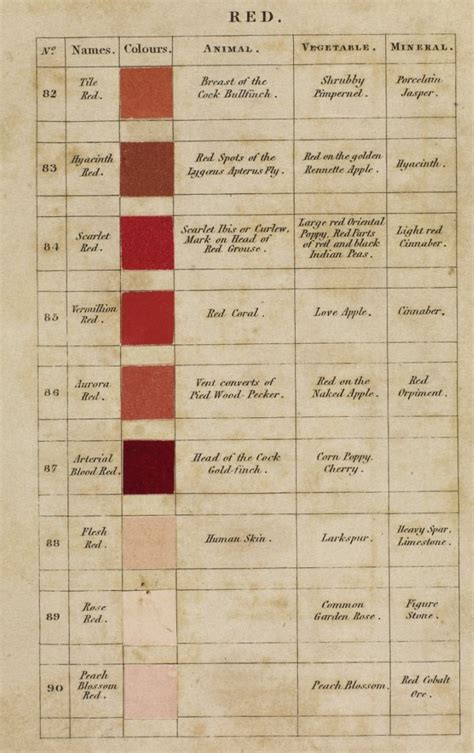 RED.
Nº. Names. Colours. ANIMAL. VEGETABLE. MINERAL.
82 Tile Red. Breast of the Cock Bullfinch. Shrubby Pimpernel. Porcelain Jasper.
83 Hyacinth Red. Red Spots of the Lygæus Apterus Fly. Red on the golden Rennette Apple. Hyacinth.
84 Scarlet Red. Scarlet Ibis or Curlew, Mark on Head of Red Grouse. Large red Oriental Poppy, Red Parts of red and black Indian Peas. Light red Cinnaber.
85 Vermillion Red. Red Coral. Love Apple. Cinnaber.
86 Aurora Red. Vent converts of Pied Wood-Pecker. Red on the Naked Apple. Red Orpiment.
87 Arterial Blood Red. Head of the Cock Gold-finch. Corn Poppy, Cherry.
88 Flesh Red. Human Skin. Larkspur. Heavy Spar, Limestone.
89 Rose Red. Common Garden Rose. Figure Stone.
90 Peach Blossom Red. Peach Blossom. Red Cobalt Ore.